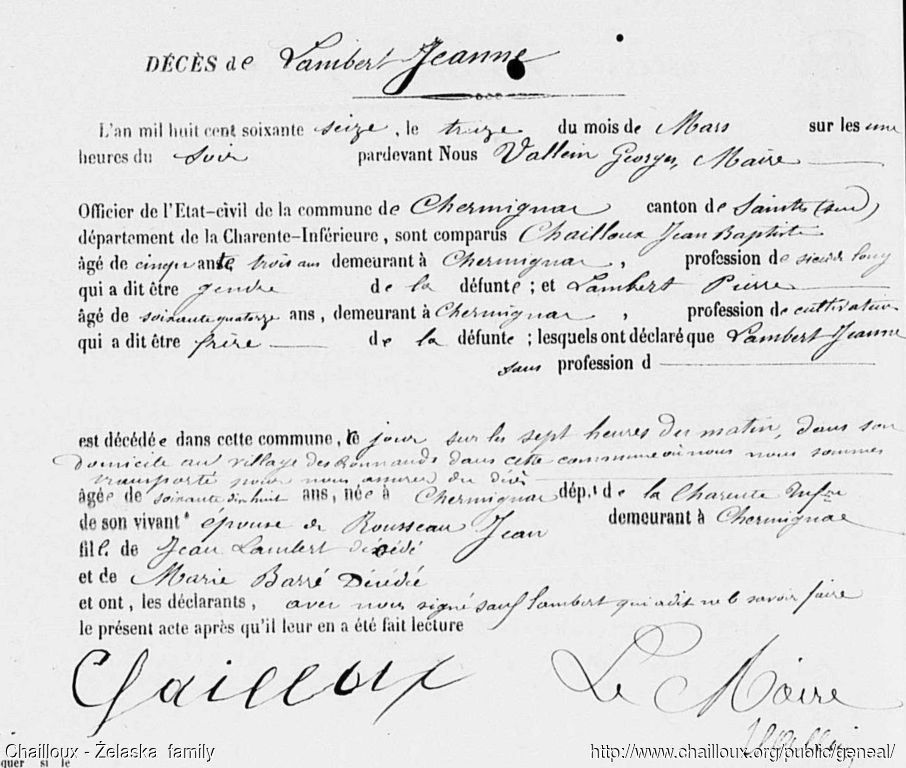 DÉCÈS de Lambert Jeanne
L'an mil huit cent soixante seize, le treize du mois de Mars sur les une
heures du soir pardevant Nous Vallein Georges, Maire
Officier de l'Etat-civil de la commune de Chermignac canton de Saintes (sud)
département de la Charente-Inférieure, sont comparus Chailloux Jean Baptiste
âgé de cinquante trois ans demeurant à Chermignac, profession de scieur long
qui a dit être gendre de la défunte; et Lambert Pierre
âgé de soixante quatorze ans, demeurant à Chermignac, profession de cultivateur
qui a dit être frère de la défunte; lesquels ont déclaré que Lambert Jeanne
sans profession d
est décédée dans cette commune, le jour sur les sept heures du matin, dans son
domicile au village des dans cette commune où nous nous sommes
transporté pour nous assurer du décès
âgée de soixante dix huit ans, née à Chermignac dép.t de la Charente Infre
de son vivant épouse de Rousseau Jean demeurant à Chermignac
fille de Jean Lambert décédé
et de Marie Barré Décédée
et ont, les déclarants, avec nous signé sauf Lambert qui a dit ne le savoir faire
le présent acte après qu'il leur en a été fait lecture
Chailloux Le Maire
Chailloux - Żelaska family http://www.chailloux.org/public/geneal/
quer si le